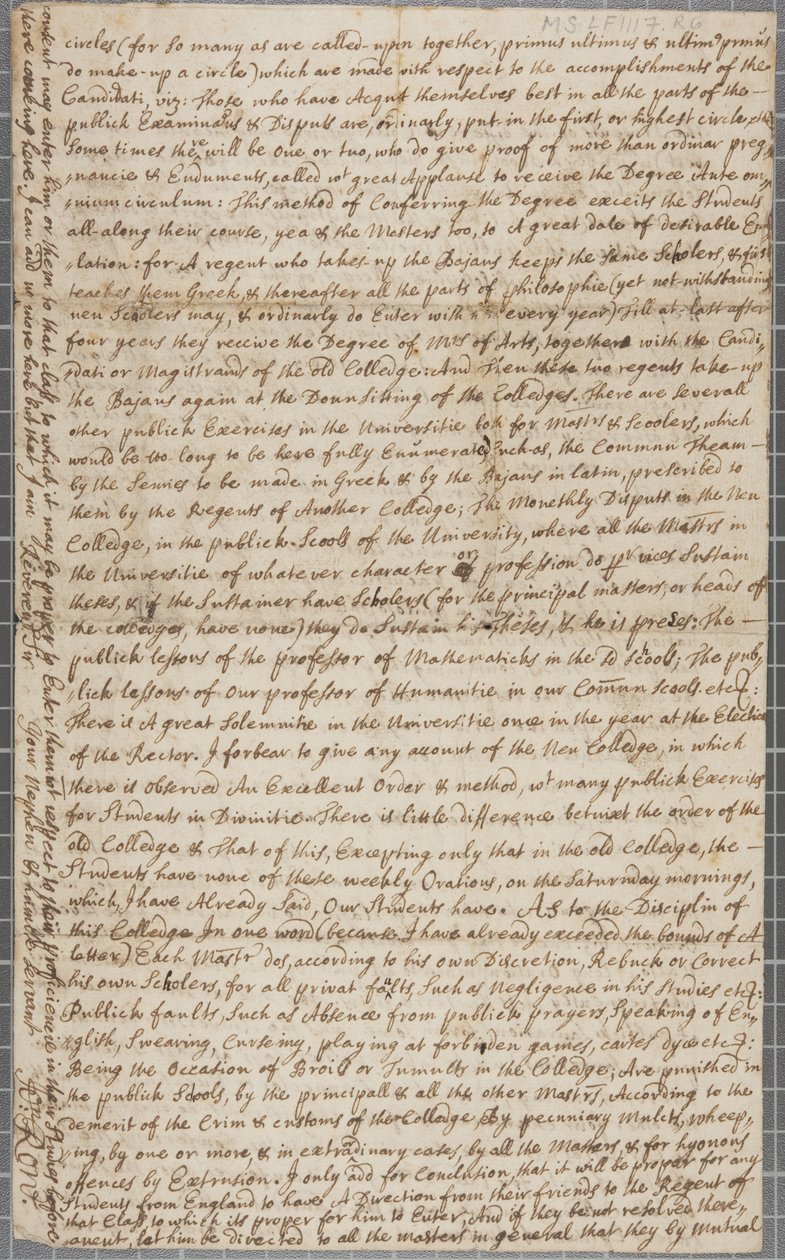 MS LF1117. R6
circles (for so many as are called-upon together, primus ultimus & ultim9 prmus
do make-up a circle) which are made with respect to the accomplishments of the
Candidati, viz: Those who have Acqut themselves best in all the parts of the —
publick Examinaõns & Disputs are, ordinarly, put in the first, or highest circle,
Some times there will be one or two, who do give proof of more than ordinar preg„
„nancie & Enduments, called wt great Applause to receive the Degree Ante om„
„nium circulum: This method of Conferring the Degree exceits the Students
all-along their course, yea & the Masters too, to A great dale of desirable Em„
„lation: for A regent who takes-up the Bajans keeps the same Scholers, & first
teaches them Greek, & thereafter all the parts of philosophie (yet not-withstanding
neu Scholers may, & ordinarly do Enter with every year) Till at-last after
four years they receive the Degree of Mrs of Arts, together with the Candi„
„dati or Magistrands of the old Colledge: And then these two regents take-up
the Bajans again at the Doun Sitting of the Colledges. There are severall
other publick Exercises in the Universitie both for Mastrs & Scoolers, which
would be too-long to be here fully Enumerate) Such as, the Commun Theam —
by the Semies to be made in Greek & by the Bajans in latin, prescribed to
them by the Regents of Another Colledge; The Monethly Disputs in the Neu
Colledge, in the publick-Scools of the University, where all the Mastrs in
the Universitie of whatever character or profession do pr vices Sustain
theses, & if the Sustainer have Scholers (for the principal masters, or heads of
the colledges, have none) they do Sustain his Theses, & he is preses: The —
publick lessons of the professor of Mathematicks in the Sd schools; The pub„
„lick lessons of our professor of Humanitie in our Com̄un scools. etc:
There is A great Solemnitie in the Universitie once in the year at the Election
of the Rector. I forbear to give any account of the Neu Colledge, in which
there is observed An Excellent Order & method, wt many publick Exercises
for Students in Divinitie. There is little difference betwixt the order of the
old Colledge & That of this, Excepting only that in the old Colledge, the —
Students have none of these weekly Orations, on the Saturnday mornings,
which, I have Already Said, Our Students have. AS to the Disciplin of
this Colledge In one word (because I have already exceeded the bounds of A
letter) Each Mastr dos, according to his own Discretion, Rebuck or Correct
his own Scholers, for all privat faults, Such as Negligence in his Studies etc:
Publick faults, Such as Absence from publick prayers, Speaking of En„
„glish, Swearing, Curseing, playing at forbiden games, cartes dyce etc:
Being the Occasion of Broils or Tumults in the Colledge; Are punished in
the publick Scools, by the principall & all the other Mastrs, According to the
demerit of the Crim & customs of the Colledge by pecuniary Mulct, wheep„
„ing, by one or more, & in extraordinary cases, by all the Masters, & for hyonous
offences by Extrusion. I only add for Conclusion, that it will be proper for any
Students from England to have A Direction from their friends to the Regent of
that Class to which its proper for him to Enter, And if they be not resolved there„
„anent, let him be directed to all the masters in general that they by mutual
consent may enter him or them to that class to which it may be proper to Enter them wt respect to their proficiencie in their Studies before
there comeing here. I can add no more here but that I am Reverend Sir Your Nepheu & humble servant